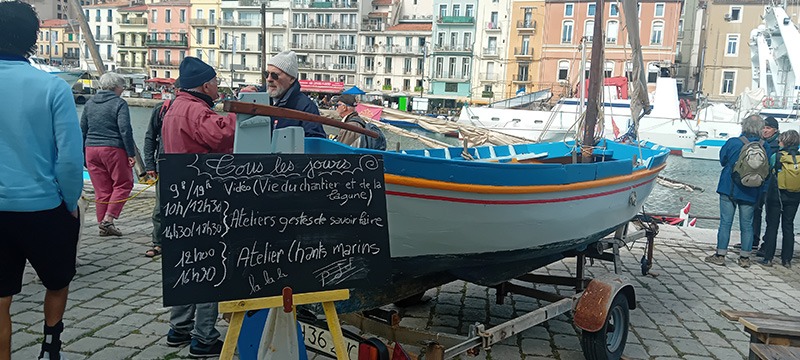 Tous les jours
9h/19h Vidéo (Vie du chantier et de la lagune)
10h/12h30
14h30/17h30 } Ateliers gestes de savoir faire
12h00
16h30 } Atelier Chants marins
la la la